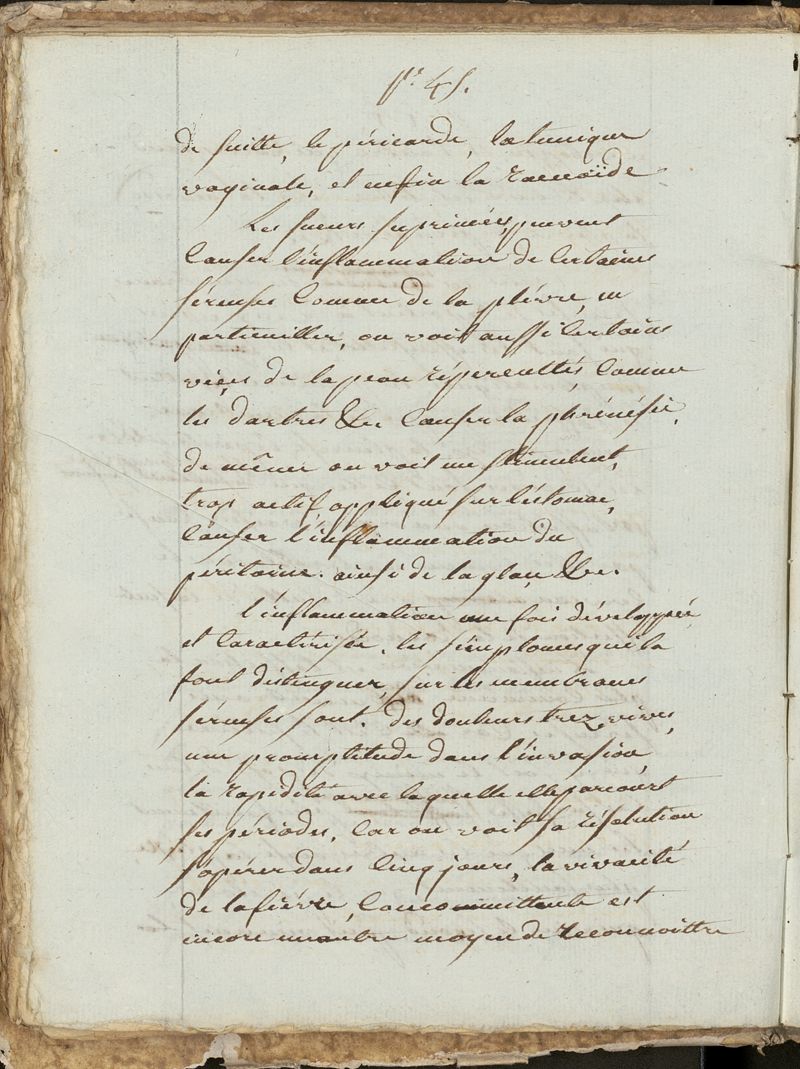 de suitte, le péricarde, la tunique
vaginale, et enfin la racnoïde
Les sueurs suprimées, peuvent
causer l'inflammation de certaines
séreuses comme de la plévre, en
particuiller, on voit aussi certains
vices de la peau répercuttés, comme
les dartres &c causer la phrénésie,
de même on voit un stimulent,
trop actif, appliqué sur l'éstomac,
causer l'inflammation du
péritoine. ainsi de la glace &c.
l'inflammation une fois dévelappée
et caractérisée, les simptomes qui la
font distinguer, sur les membranes
séreuses sont. des douleurs trez vives,
une promptitude dans l'invasion,
la rapidité avec laquelle elle parcourt
ses périodes, car on voit sa résolution
s'opérer dans cinq jours, la vivacité
de la fiévre, concommittente est
encore un autre moyen de reconnoittre